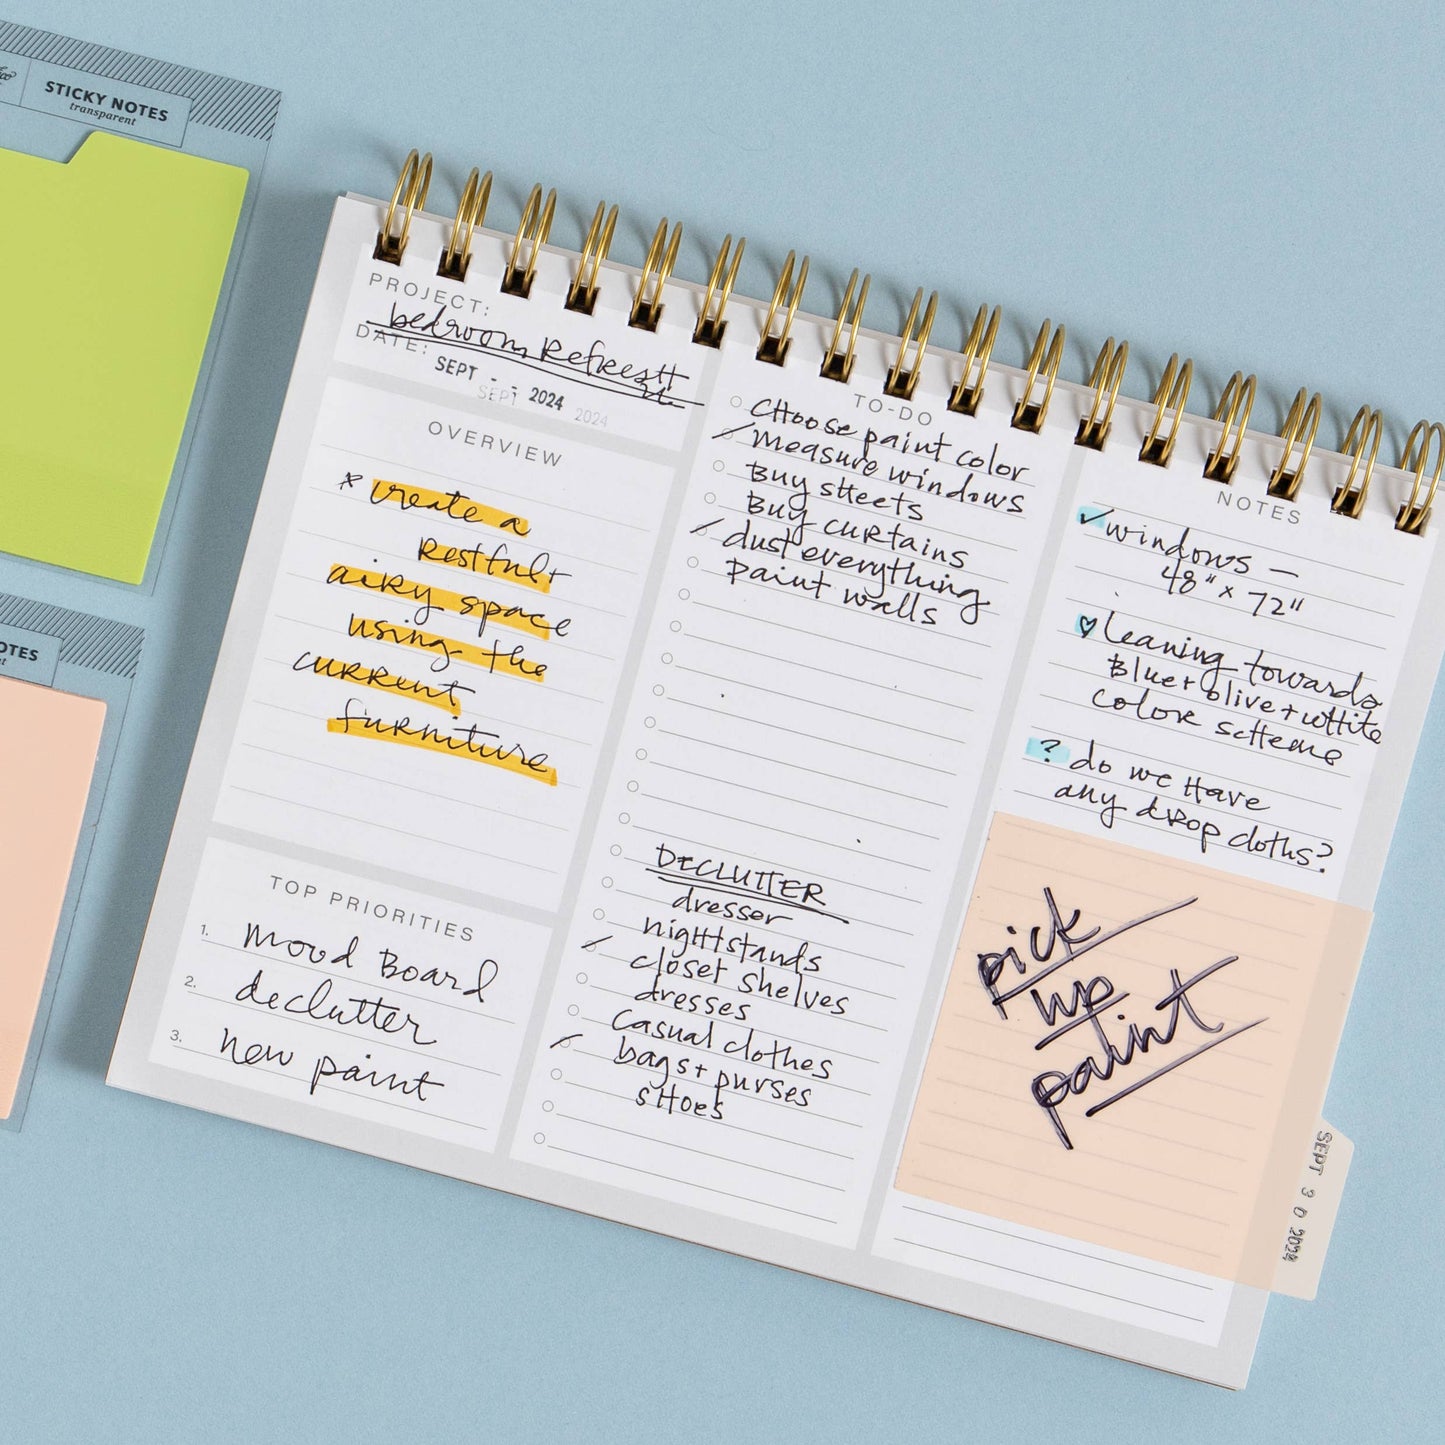 STICKY NOTES
transparent
OTES
PROJECT:
bedroom Refresh
DATE:
SEPT - - 2024
SEPT 2024
OVERVIEW
* create a
restful +
airy space
using the
current
furniture
TOP PRIORITIES
1. Mood Board
2. declutter
3. new paint
TO-DO
Choose paint color
measure windows
Buy sheets
Buy curtains
dust everything
paint walls
DECLUTTER
dresser
nightstands
closet shelves
dresses
casual clothes
bags + purses
shoes
NOTES
✓ windows —
48" x 72"
♡ leaning towards
Blue + olive + white
color scheme
? do we have
any drop cloths?
pick
up
paint
SEPT 30 2024